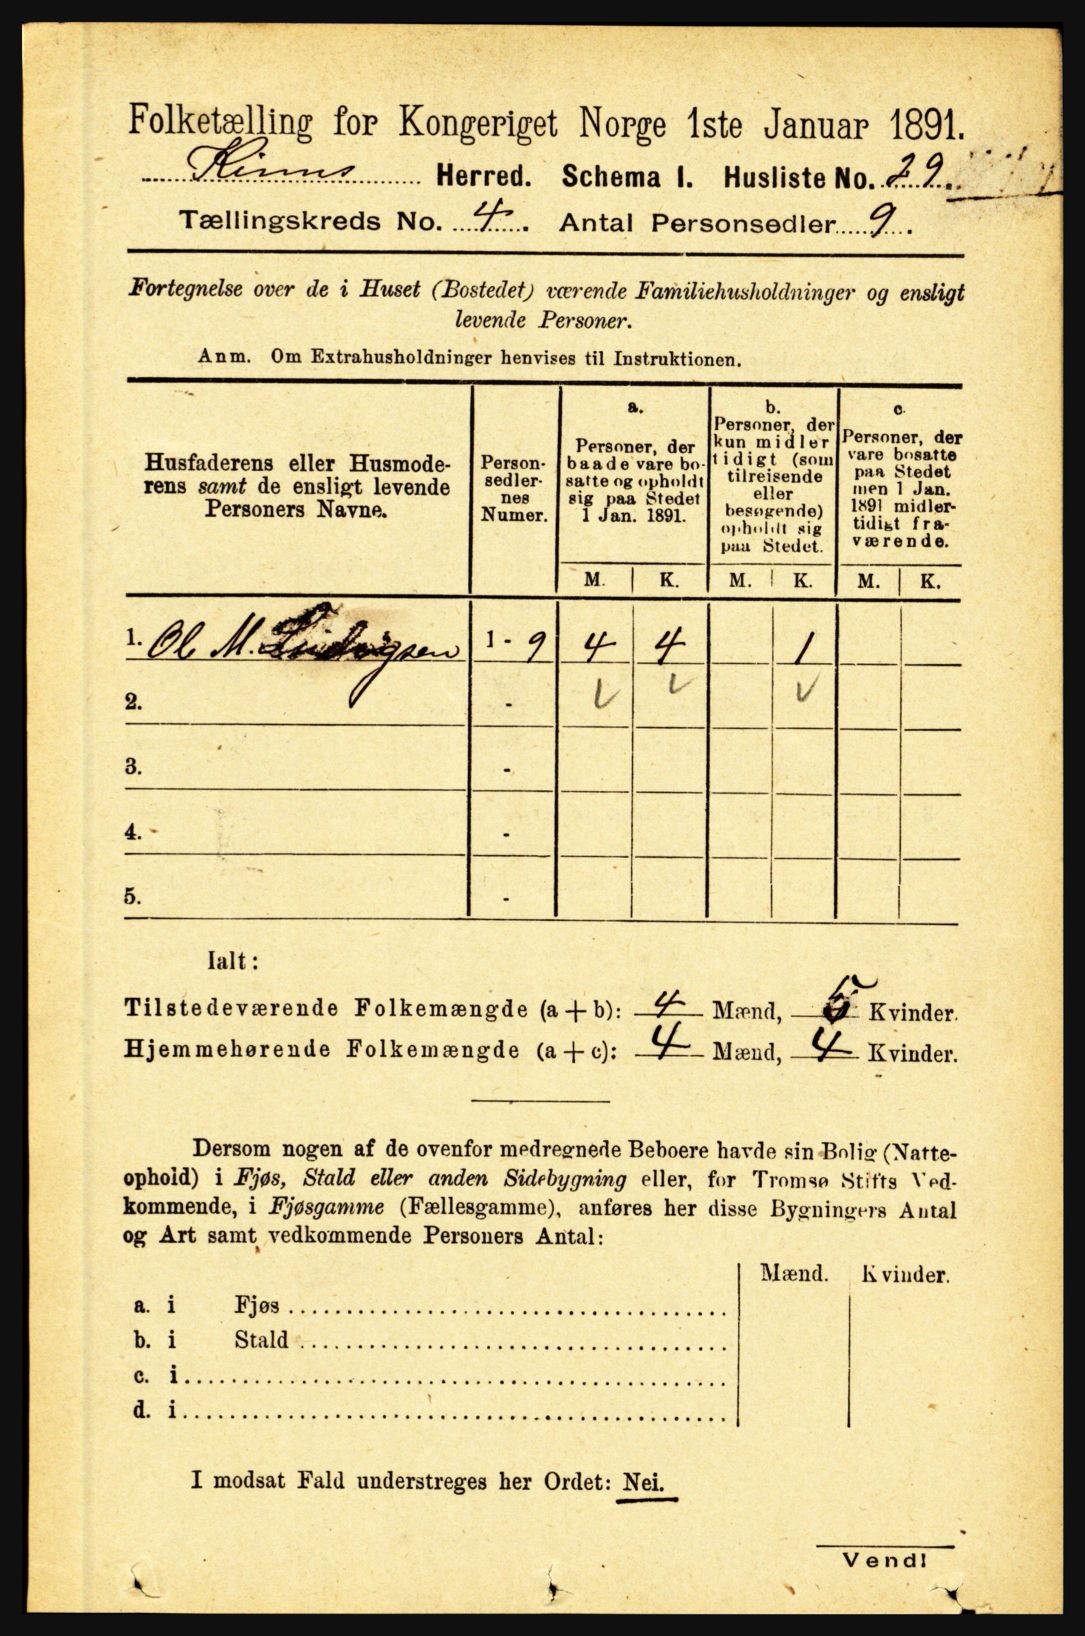 Folketælling for Kongeriget Norge 1ste Januar 1891.
Kinns Herred. Schema I. Husliste No. 29.
Tællingskreds No. 4. Antal Personsedler 9.
Fortegnelse over de i Huset (Bostedet) værende Familiehusholdninger og ensligt
levende Personer.
Anm. Om Extrahusholdninger henvises til Instruktionen.
Husfaderens eller Husmode-
rens samt de ensligt levende
Personers Navne.
Person-
sedler-
nes
Numer.
a.
Personer, der
baade vare bo-
satte og opholdt
sig paa Stedet
1 Jan. 1891.
b.
Personer, der
kun midler
tidigt (som
tilreisende
eller
besøgende)
opholdt sig
paa Stedet.
c.
Personer, der
vare bosatte
paa Stedet
men 1 Jan.
1891 midler-
tidigt fra-
værende.
M. K. M. K. M. K.
1. Ol M. Ludvigsen 1 - 9 4 4 1
2. -
3. -
4. -
5. -
Ialt:
Tilstedeværende Folkemængde (a + b): 4 Mænd, 5 Kvinder.
Hjemmehørende Folkemængde (a + c): 4 Mænd, 4 Kvinder.
Dersom nogen af de ovenfor medregnede Beboere havde sin Bolig (Natte-
ophold) i Fjøs, Stald eller anden Sidebygning eller, for Tromsø Stifts Ved-
kommende, i Fjøsgamme (Fællesgamme), anføres her disse Bygningers Antal
og Art samt vedkommende Personers Antal:
Mænd. Kvinder.
a. i Fjøs
b. i Stald
c. i
d. i
I modsat Fald understreges her Ordet: Nei.
Vend!